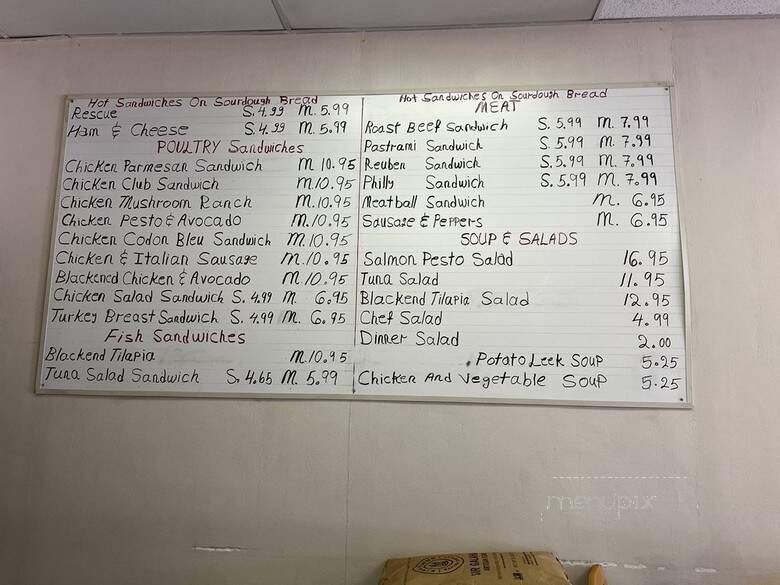 Hot Sandwiches On Sourdough Bread
Rescue S. 4.99 M. 5.99
Ham & Cheese S. 4.99 M. 5.99
POULTRY Sandwiches
Chicken Parmesan Sandwich M 10.95
Chicken Club Sandwich M.10.95
Chicken Mushroom Ranch M.10.95
Chicken Pesto & Avocado M.10.95
Chicken Codon Bleu Sandwich M.10.95
Chicken & Italian Sausage M.10.95
Blackened Chicken & Avocado M.10.95
Chicken Salad Sandwich S. 4.99 M. 6.95
Turkey Breast Sandwich S. 4.99 M. 6.95
Fish Sandwiches
Blackend Tilapia M.10.95
Tuna Salad Sandwich S. 4.65 M. 5.99
Hot Sandwiches On Sourdough Bread
MEAT
Roast Beef Sandwich S. 5.99 M. 7.99
Pastrami Sandwich S. 5.99 M. 7.99
Reuben Sandwich S. 5.99 M. 7.99
Philly Sandwich S. 5.99 M. 7.99
Meatball Sandwich M. 6.95
Sausage & Peppers M. 6.95
SOUP & SALADS
Salmon Pesto Salad 16.95
Tuna Salad 11.95
Blackend Tilapia Salad 12.95
Chef Salad 4.99
Dinner Salad 2.00
. Potato Leek Soup 5.25
Chicken And Vegetable Soup 5.25
menupix